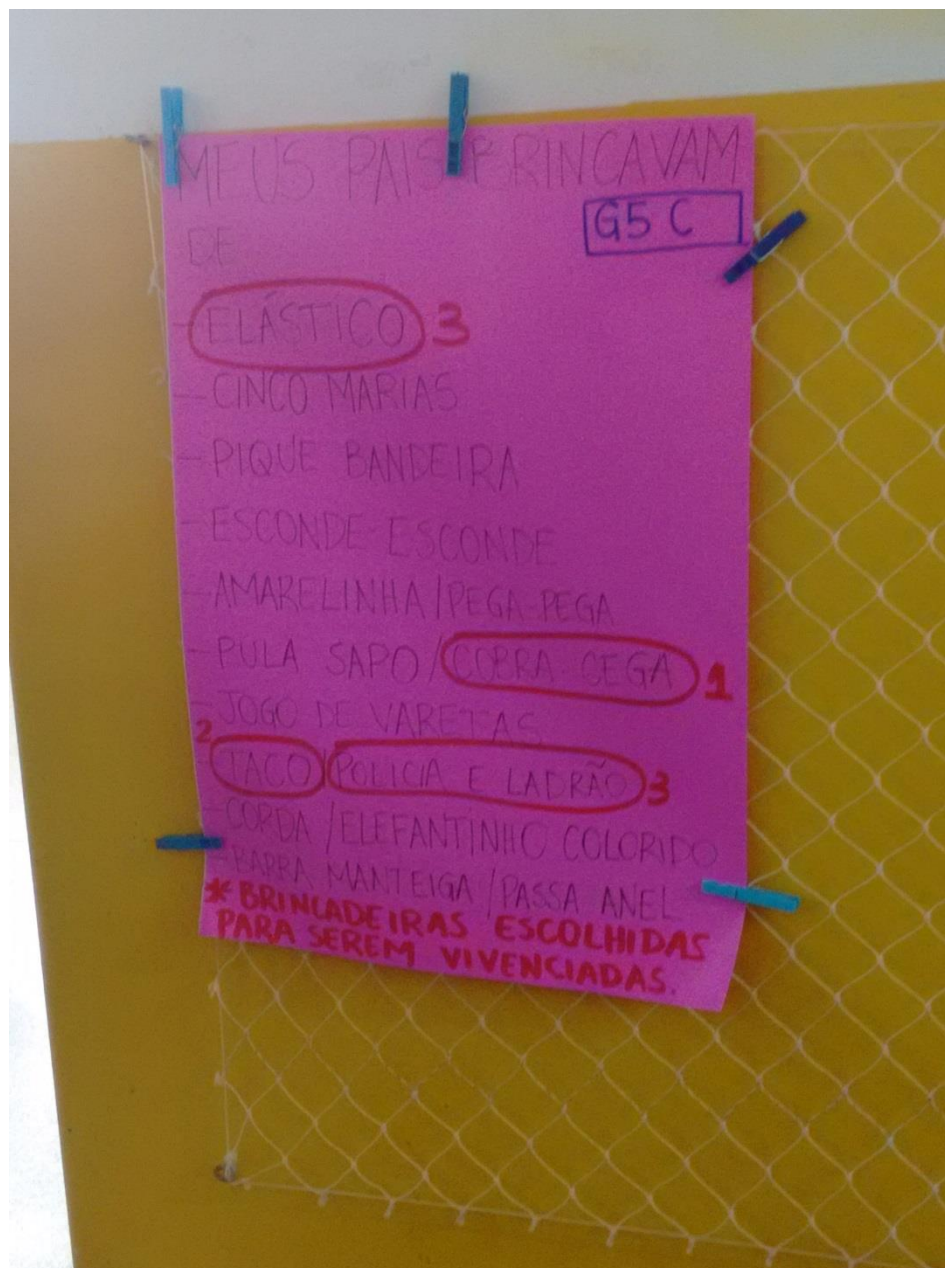 MEUS PAIS BRINCAVAM
G5 C
DE
- ELÁSTICO 3
- CINCO MARIAS
- PIQUE BANDEIRA
- ESCONDE-ESCONDE
- AMARELINHA/PEGA-PEGA
- PULA SAPO/COBRA CEGA 1
- JOGO DE VARETAS
2
- TACO/POLICIA E LADRÃO 3
- CORDA/ELEFANTINHO COLORIDO
- BARRA MANTEIGA/PASSA ANEL
* BRINCADEIRAS ESCOLHIDAS
PARA SEREM VIVENCIADAS.